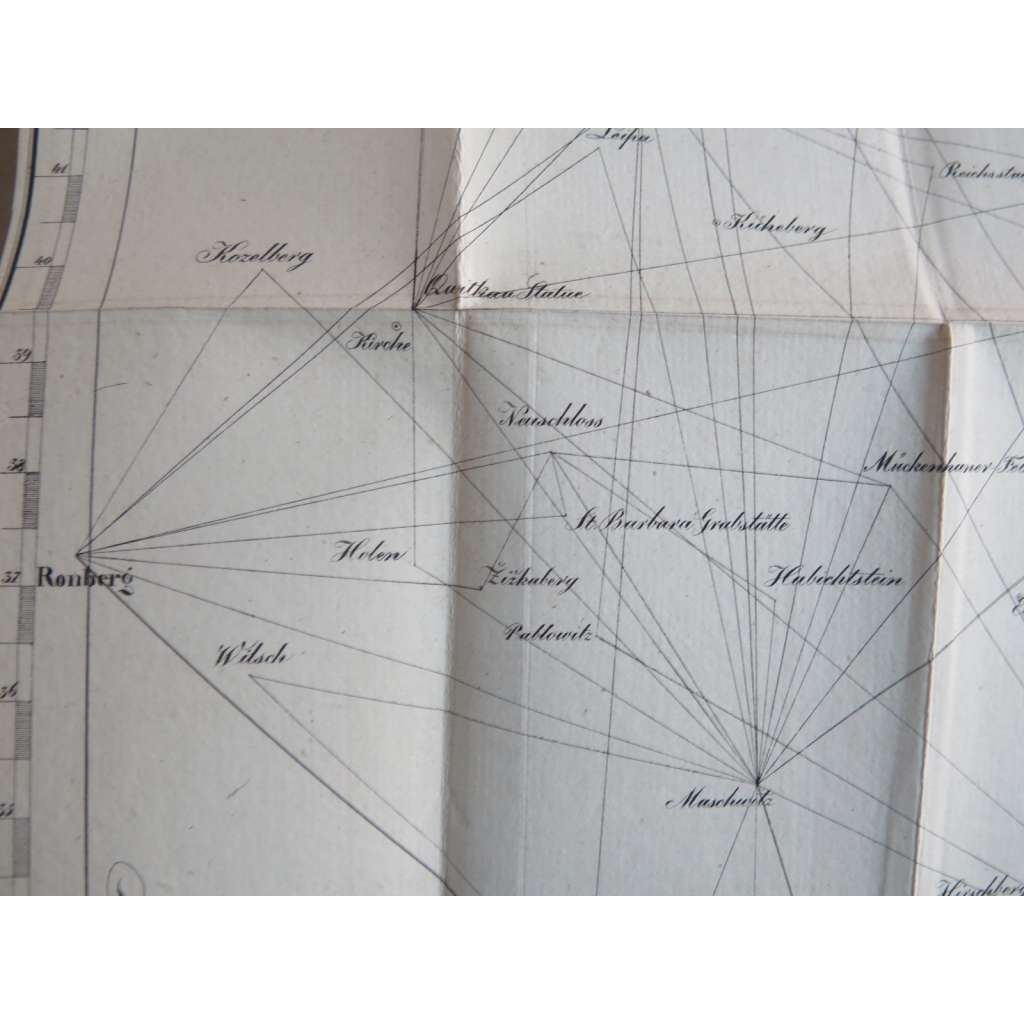 Leipa
41
Reichssta
Kicheberg
Kozelberg
40
Statue
Kirche
39
Neuschloss
38
Mückenhaner
St. Barbara Grabstätte
Holen
37
Ronberg
Žižkaberg
Habichtstein
Pablowitz
Witsch
36
Maschwitz
35
Hirschberg